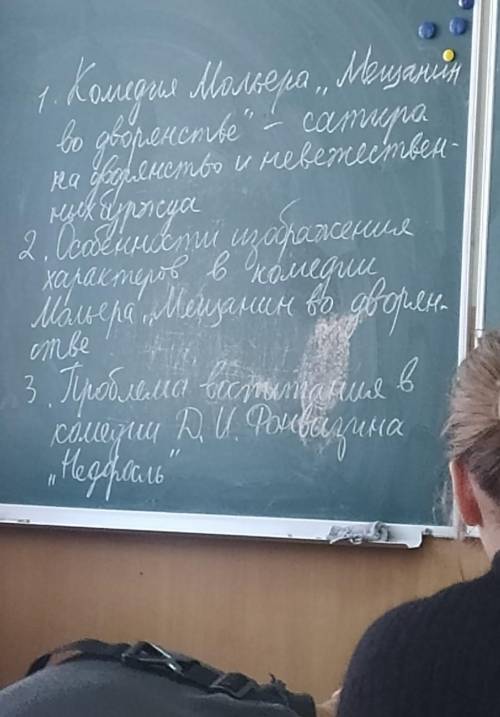 1. Комедия Мольера „Мещанин
во дворянстве" – сатира
на дворянство и невежествен-
ных буржуа
2. Особенности изображения
характеров в комедии
Мольера „Мещанин во дворян-
стве
3. Проблема воспитания в
комедии Д. И. Фонвизина
„Недоросль"